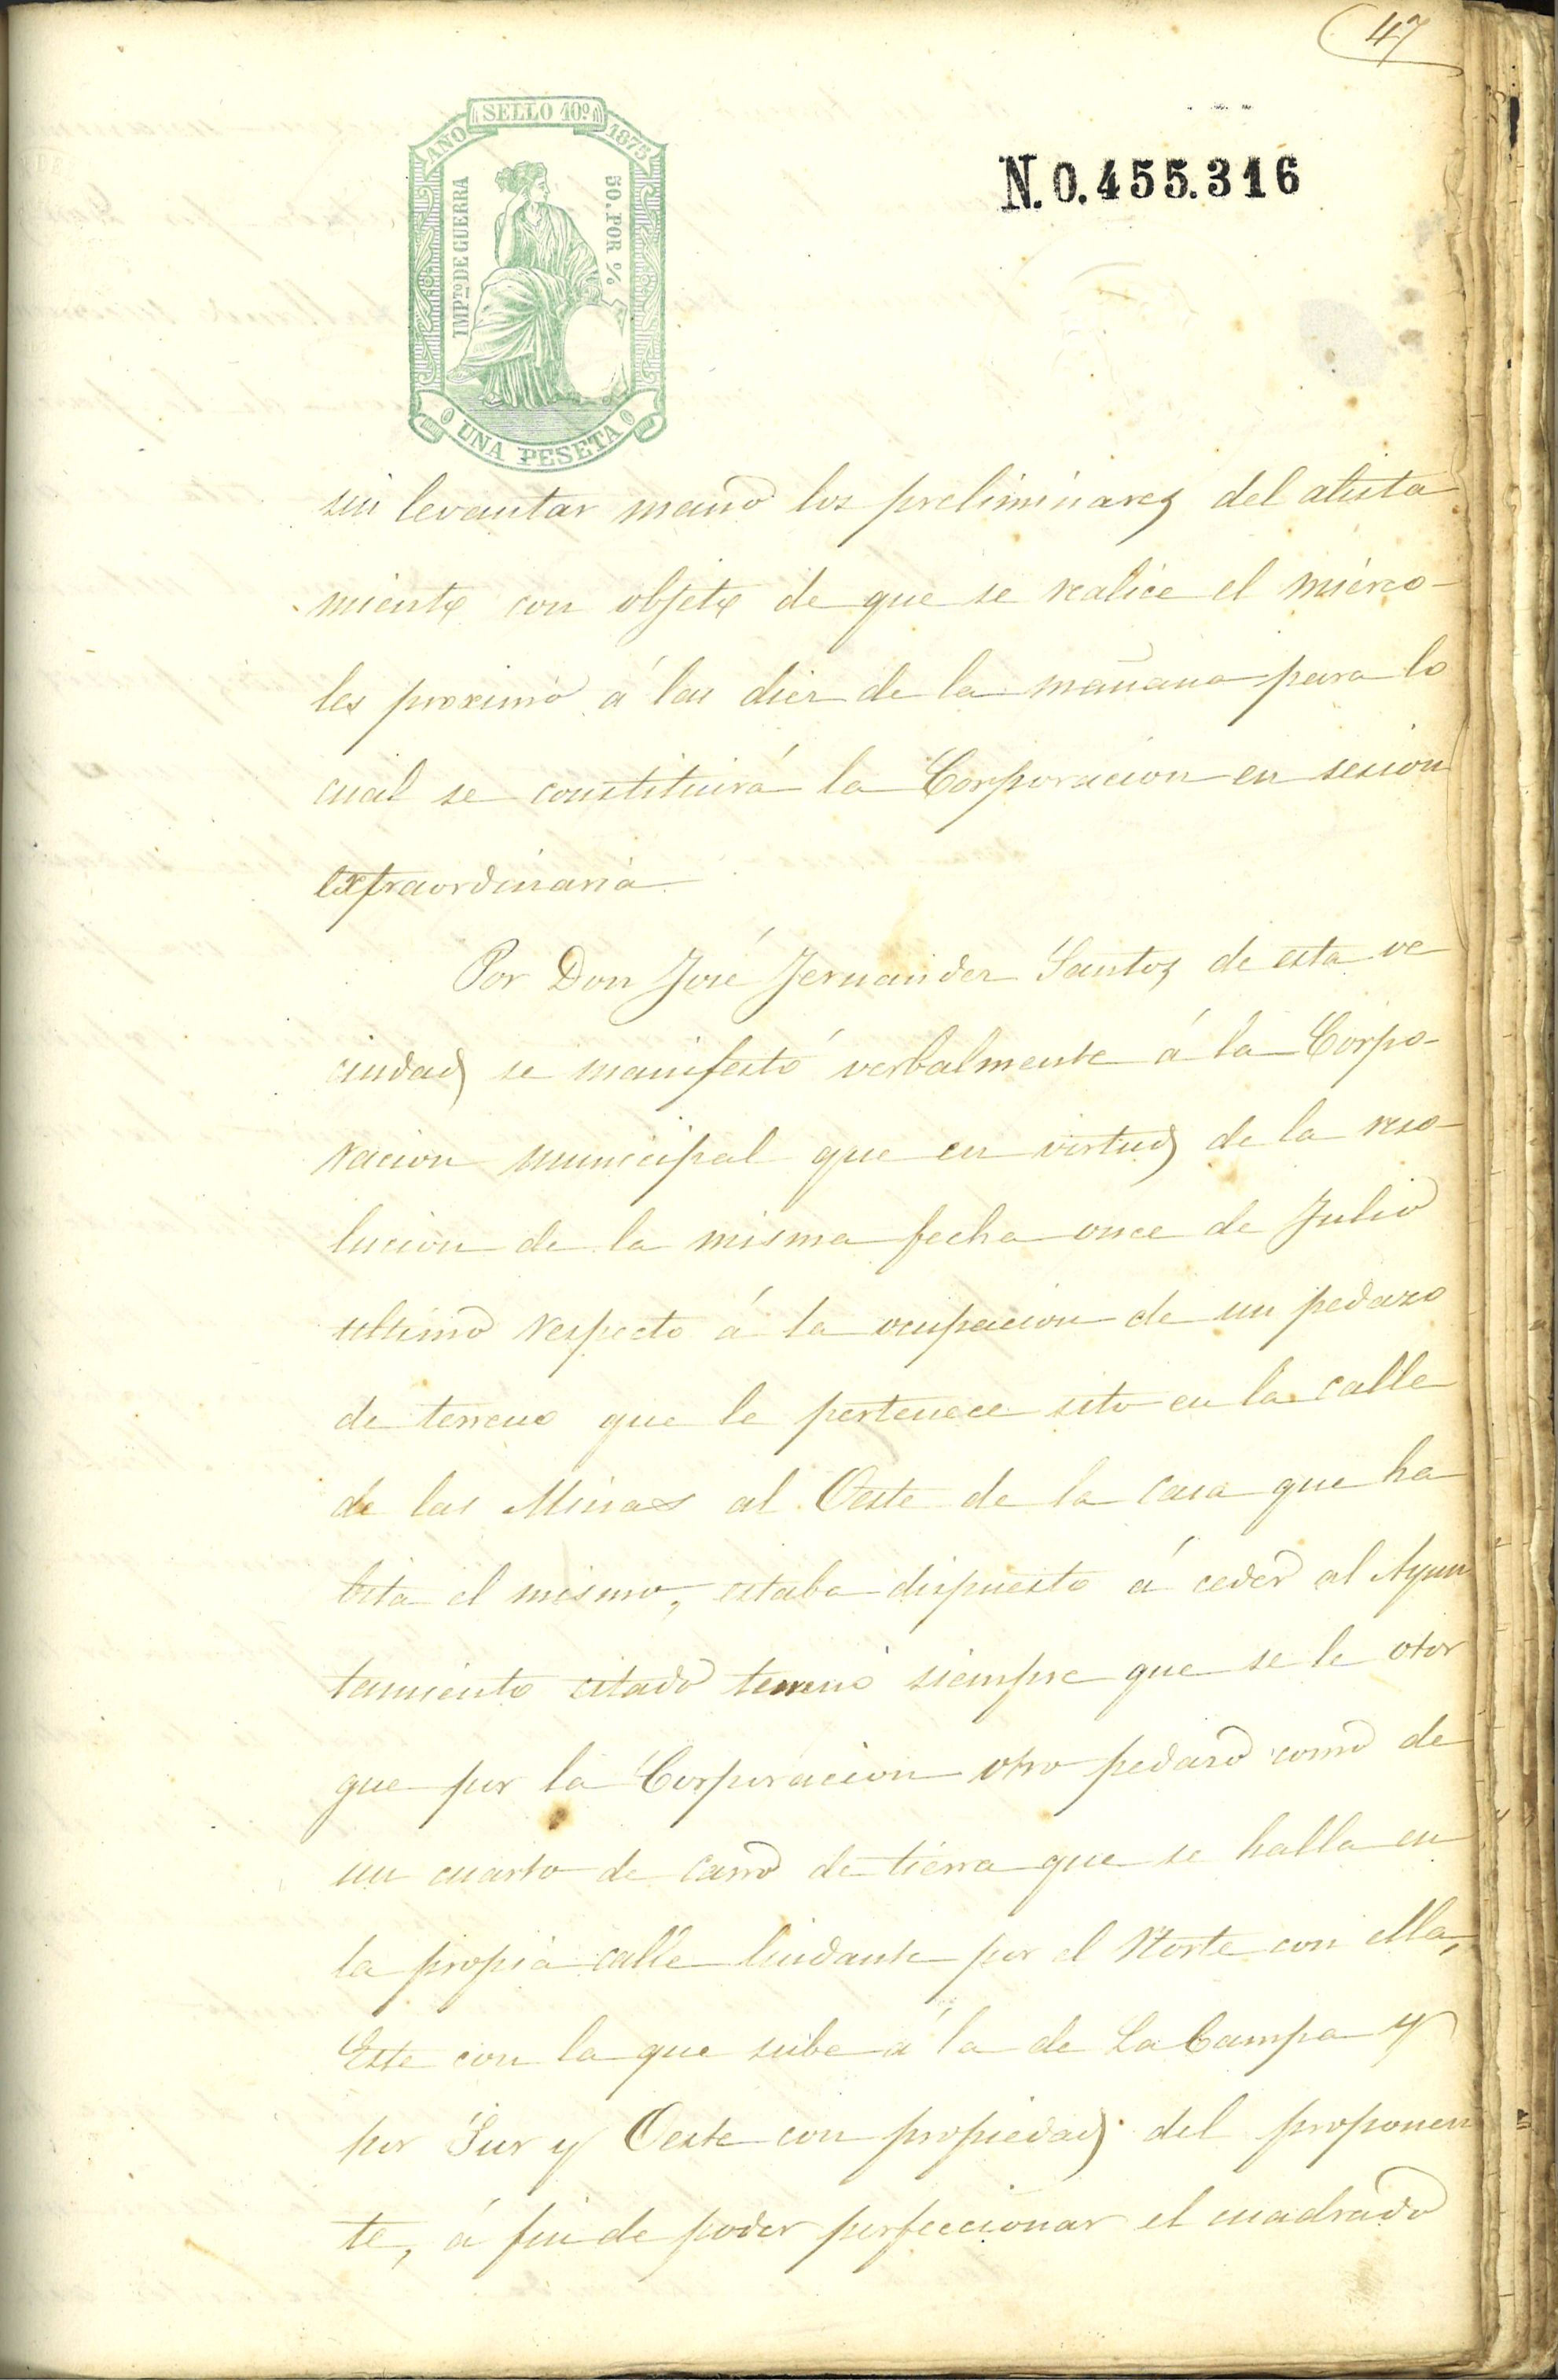 47
SELLO 10º
AÑO 1875
IMPTO DE GUERRA
50. POR %
UNA PESETA
N. 0.455.316
sin levantar mano los preliminares del alista
miento con objeto de que se realice el miérco-
les proximo á las diez de la mañana para lo
cual se constituirá la Corporacion en sesion
extraordinaria
Por Don José Fernandez Santos de esta ve
cindad se manifestó verbalmente á la Corpo-
racion municipal que en virtud de la reso-
lucion de la misma fecha once de Julio
ultimo respecto á la ocupacion de un pedazo
de terreno que le pertenece sito en la calle
de las Minas al Oeste de la casa que ha
bita el mismo, estaba dispuesto á ceder al Ayun
tamiento citado terreno siempre que se le otor
gue por la Corporacion otro pedazo como de
un cuarto de carro de tierra que se halla en
la propia calle lindante por el Norte con ella,
Este con la que sube á la de La Campa y
por Sur y Oeste con propiedad del proponen
te, á fin de poder perfeccionar el cuadrado